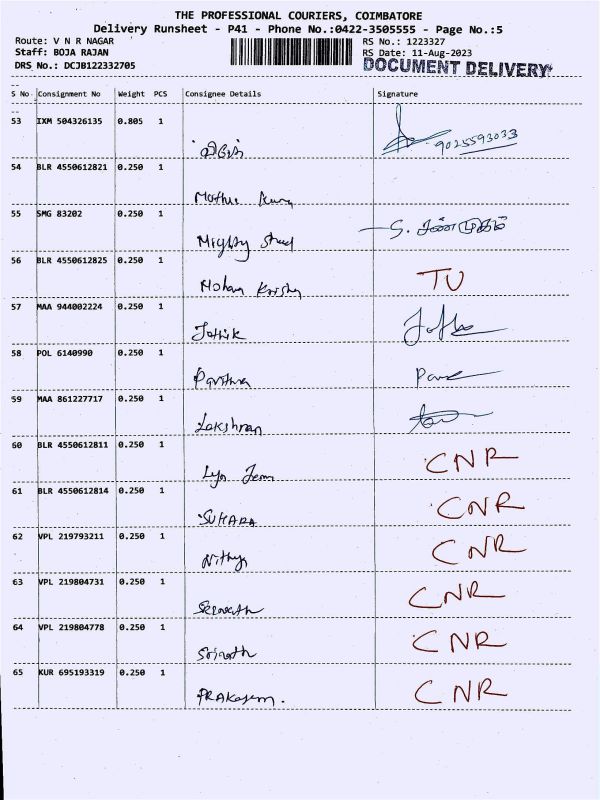 THE PROFESSIONAL COURIERS, COIMBATORE
Delivery Runsheet - P41 - Phone No.:0422-3505555 - Page No.:5
Route: V N R NAGAR RS No.: 1223327
Staff: BOJA RAJAN RS Date: 11-Aug-2023
DRS No.: DCJB122332705 DOCUMENT DELIVERY
S No Consignment No Weight PCS Consignee Details Signature
53 IXM 504326135 0.805 1
9025593033
54 BLR 4550612821 0.250 1
55 SMG 83202 0.250 1
Mighty Steel S. சண்முகம்
56 BLR 4550612825 0.250 1
Mohan Krishna TU
57 MAA 944002224 0.250 1
58 POL 6140990 0.250 1
Pavithra
59 MAA 861227717 0.250 1
Lakshman
60 BLR 4550612811 0.250 1
CNR
61 BLR 4550612814 0.250 1
SUHARA CNR
62 VPL 219793211 0.250 1
Nithya CNR
63 VPL 219804731 0.250 1
CNR
64 VPL 219804778 0.250 1
CNR
65 KUR 695193319 0.250 1
CNR